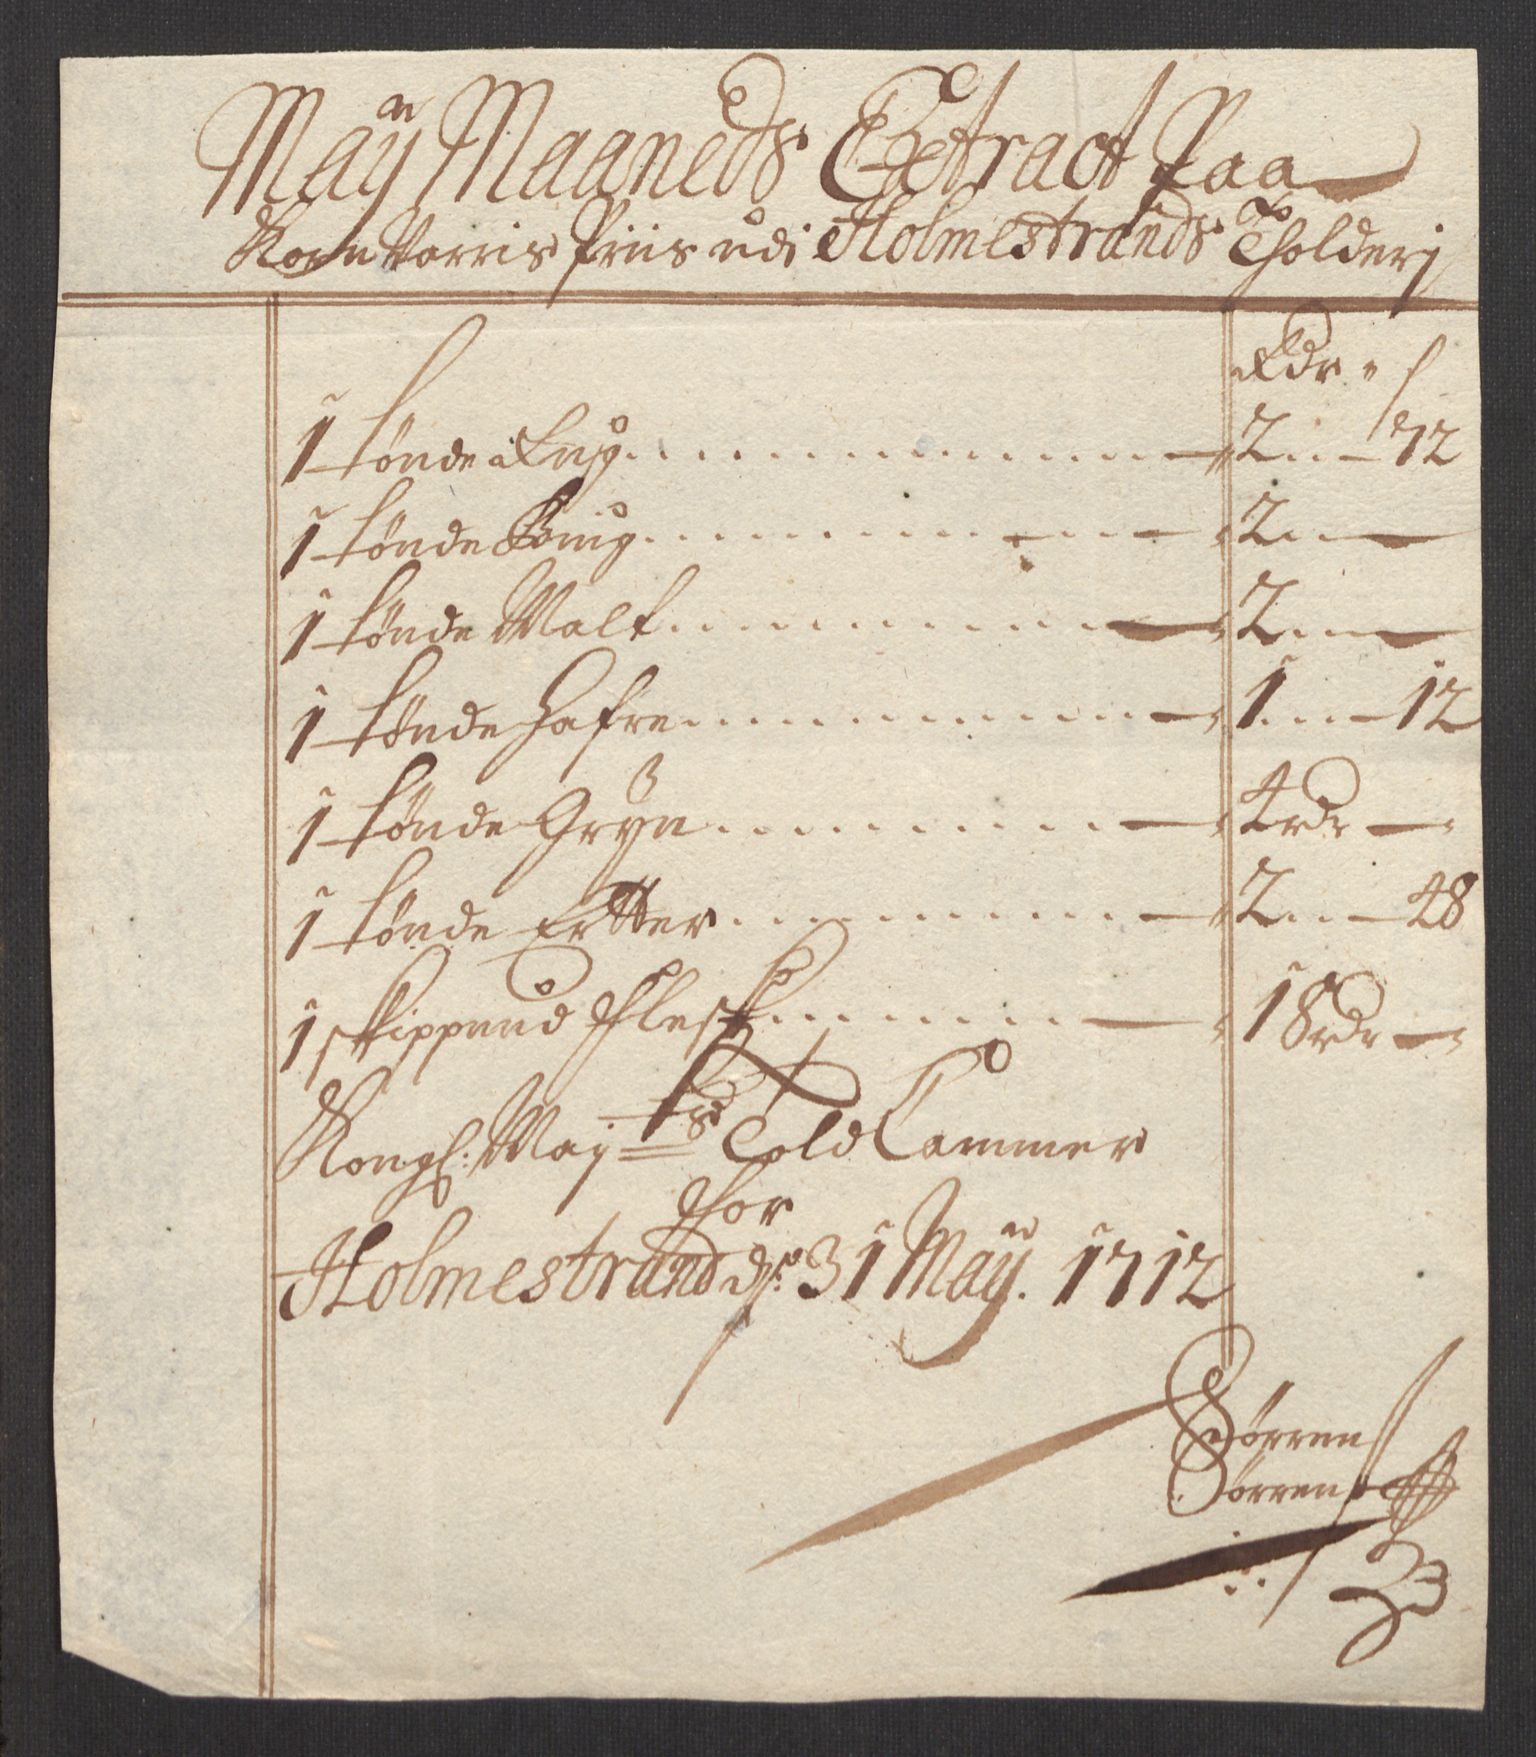 Maÿ Maaneds Extract Paa
Korn Varris Priis udi Holmestrands Tholderj
Rdr " s
1 tønde Rug 2 72
1 tønde Biug 2
1 tønde Malt 2
1 tønde Hafre 1 12
1 tønde Gryn 4 rdr
1 tønde Ertter 2 48
1 skippund Flesk 18 rdr
Kongl: Maytz Told Cammer
for
Holmestrand ds: 31 Maÿ. 1712
Sørren
Sørrens